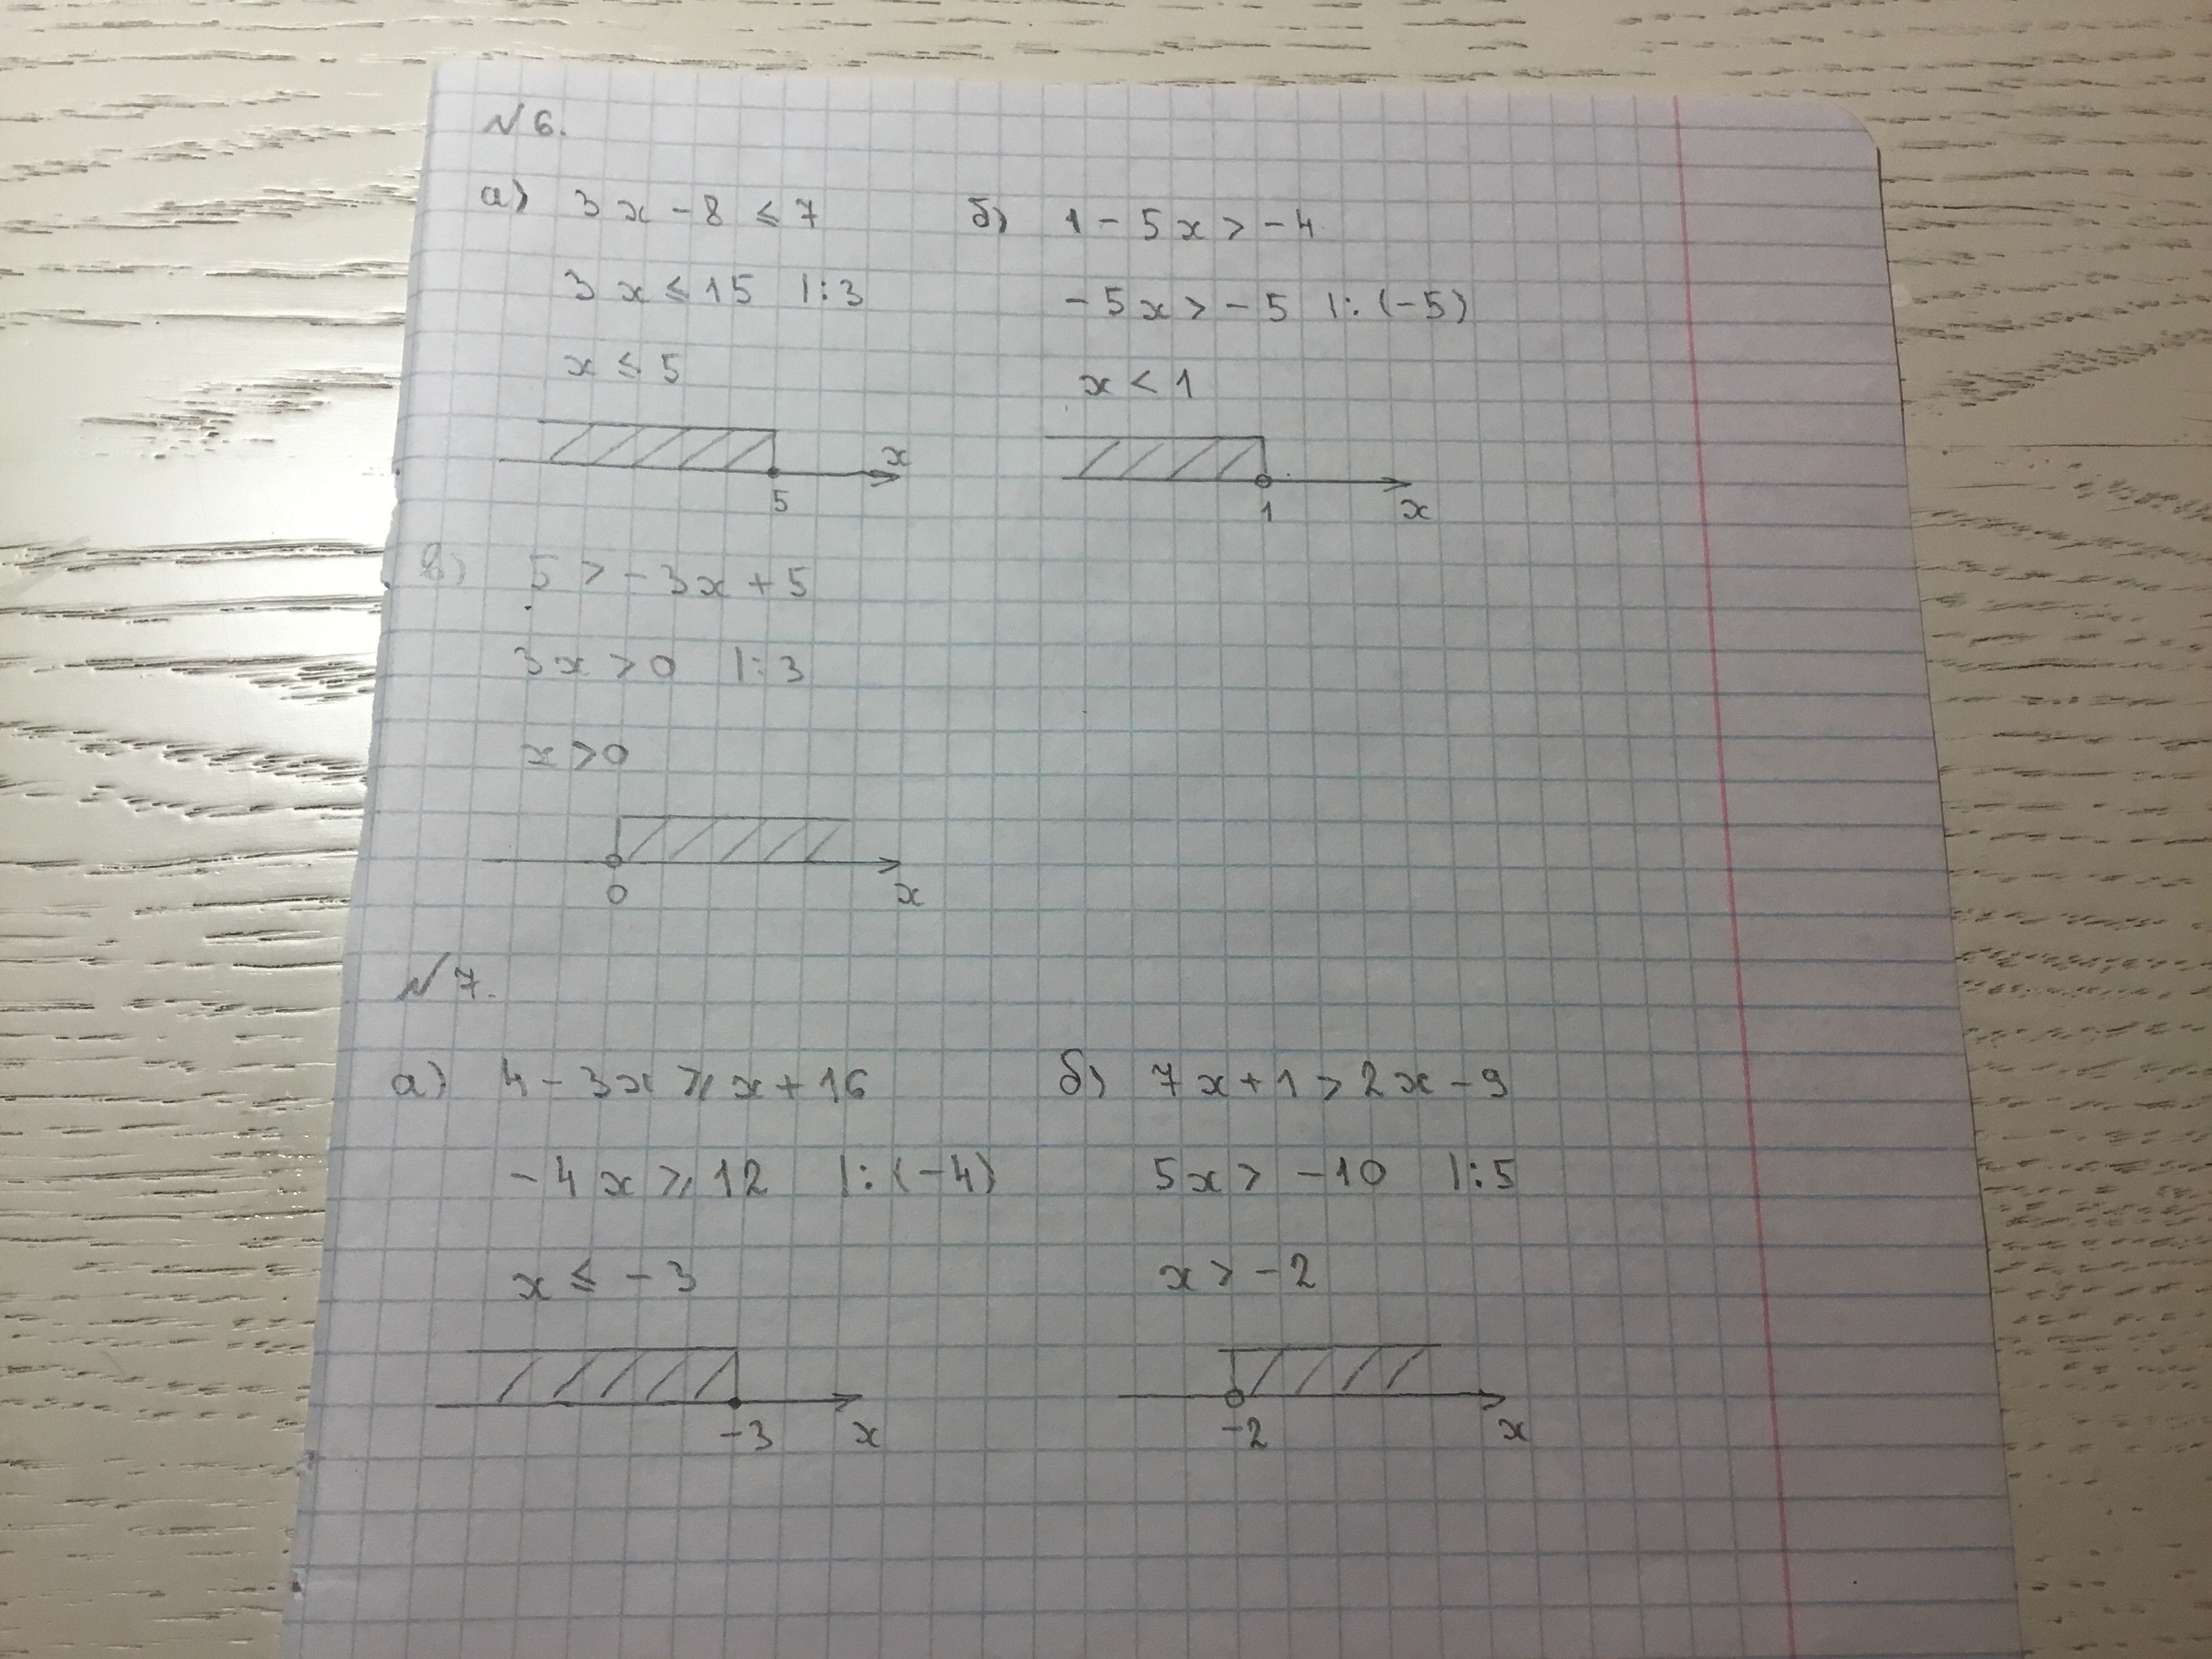 №6.
а) 3x - 8 ⩽ 7
3x ⩽ 15 |:3
x ⩽ 5
x
5
б) 1 - 5x > -4
-5x > -5 |:(-5)
x < 1
1 x
в) 5 > -3x + 5
3x > 0 |:3
x > 0
0 x
№7.
а) 4 - 3x ⩾ x + 16
-4x ⩾ 12 |:(-4)
x ⩽ -3
-3 x
б) 7x + 1 > 2x - 9
5x > -10 |:5
x > -2
-2 x